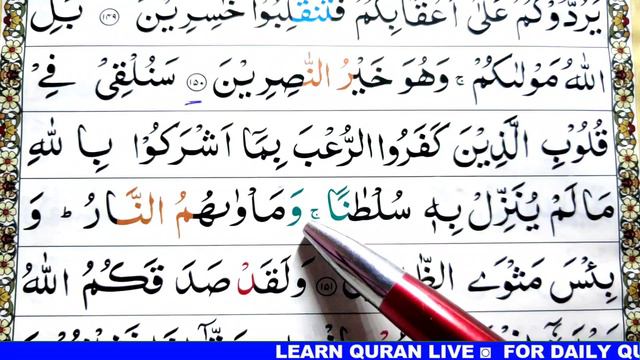 يَرُدُّوۡكُمۡ عَلٰٓى اَعۡقَابِكُمۡ فَتَنۡقَلِبُوۡا خٰسِرِيۡنَ ﴿۱۴۹﴾ بَلِ
اللّٰهُ مَوۡلٰٮكُمۡ‌ۚ وَهُوَ خَيۡرُ النّٰصِرِيۡنَ ﴿۱۵۰﴾ سَنُلۡقِىۡ فِىۡ
قُلُوۡبِ الَّذِيۡنَ كَفَرُوا الرُّعۡبَ بِمَاۤ اَشۡرَكُوۡا بِاللّٰهِ
مَا لَمۡ يُنَزِّلۡ بِهٖ سُلۡطٰنًا ‌ۚ وَمَاۡوٰٮهُمُ النَّارُ‌ؕ وَ
بِئۡسَ مَثۡوَى ﴿۱۵۱﴾ وَلَقَدۡ صَدَقَكُمُ اللّٰهُ
LEARN QURAN LIVE FOR DAILY QU